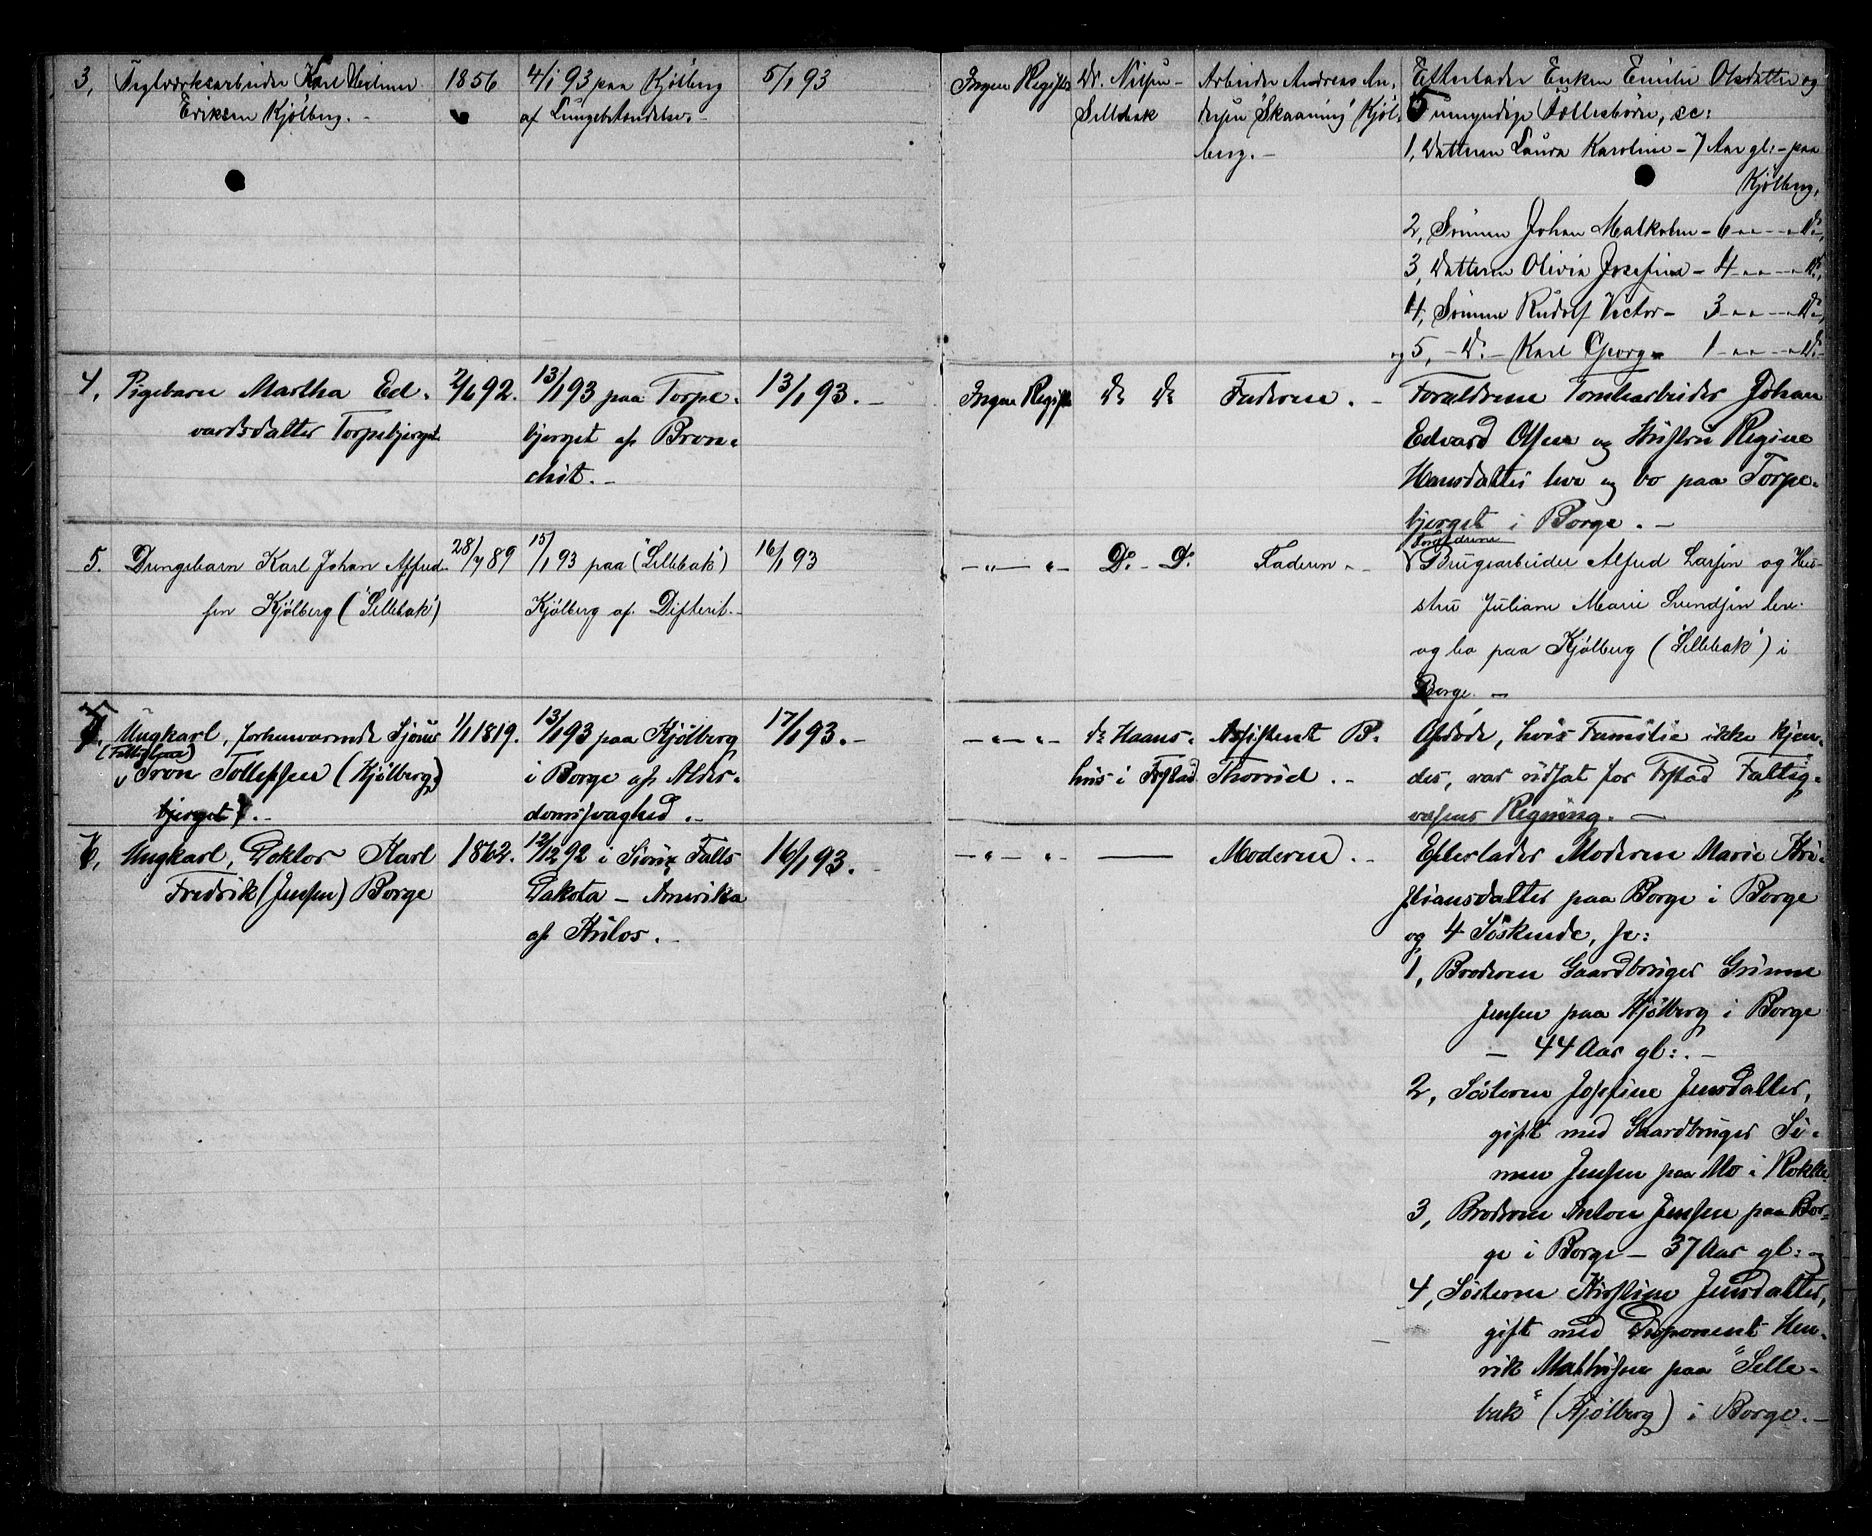 3, Teglværksarbeider Karl Vilhem
Eriksen Kjølberg. -
1856
4/1 93 paa Kjølberg
af Lungebetændelse. -
5/1 93
Ingen Regist
Dr. Nilsen -
Sellebak
Arbeider Andreas An-
dersen "Skaaning" Kjøl-
berg. -
Efterlader Enken Emilie Olsdatter og
5 umyndige Fællesbørn, sc:
1, Datteren Laura Karoline - 7 Aar gl: - paa
Kjølberg,
2, Sønnen Johan Malkolm - 6 - " - - " Do,
3, Datteren Olivia Josefine - 4 - " - - " Do,
4, Sønnen Rudolf Victor - 3 - " - - " Do,
og 5, - Do - Karl Georg - 1 - " - - " Do -
4, Pigebarn Martha Ed-
vardsdatter Torpebjerget
2/6 92.
13/1 93 paa Torpe-
bjerget af Bron-
chit. -
13/1 93. -
Ingen Regist
Do Do
Faderen. -
Forældrene Tomtearbeider Johan
Edvard Olsen og Hustru Regine
Hansdatter leve og bo paa Torpe-
bjerget i Borge. -
5. Drengebarn Karl Johan Alfred-
sen Kjølberg ("Sellebak")
28/7 89
15/1 93 paa ("Sellebak")
Kjølberg af Difterit. -
16/1 93
- " - " -
Do - Do
Faderen. -
Forældrene
Brugsarbeider Alfred Larsen og Hu-
stru Juliane Marie Svendsen leve
og bo paa Kjølberg ("Sellebak") i
Borge. -
Ungkarl, forhenværende Sjømd
1/1 1819.
13/1 93 paa Kjølberg
17/1 93. -
- " - " -
Dr Haans-
Assistent B.
Afdøde, hvis Familie ikke kjen-
(Fattiglem)
Tron Tollefsen (Kjølberg
i Borge af Alder-
hus i Frstad
Thorvid. -
des, var udsat for Frstad Fattig-
bjerget). -
domssvaghed. -
væsens Regning. -
6, Ungkarl, Doktor Karl
Fredrik (Jensen) Borge
1862.
12/12 92 i Sioux Falls
Dakota - Amerika
af Thilos. -
16/1 93.
- " - " -
Moderen. -
Efterlader Moderen Marie Kri-
stiansdatter paa Borge i Borge
og 4 Søskende, sc:
1, Broderen Gaardbruger Grimm
Jensen paa Kjølberg i Borge
- 44 Aar gl:. -
2, Søsteren Josefine Jensdatter,
gift med Gaardbruger Si-
men Jensen paa Mo i Rokke
3, Broderen Anton Jensen paa Bor-
ge i Borge - 37 Aar gl: og
4, Søsteren Kirstine Jensdatter,
gift med Disponent Hen-
rik Mathisen paa "Selle-
bak" (Kjølberg) i Borge. -